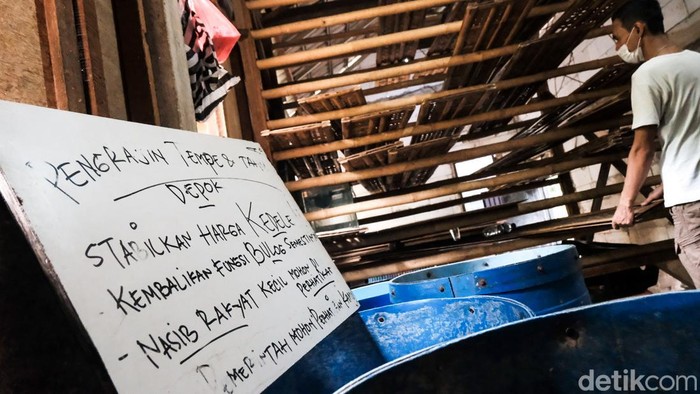 PENGRAJIN TEMPE & TAHU
DEPOK
STABILKAN HARGA KEDELE
KEMBALIKAN FUNGSI BULOG SEMESTINYA
- NASIB RAKYAT KECIL MOHON DI
PERHATIKAN
PEMERINTAH MOHON PERHATIKAN KAMI
detikcom